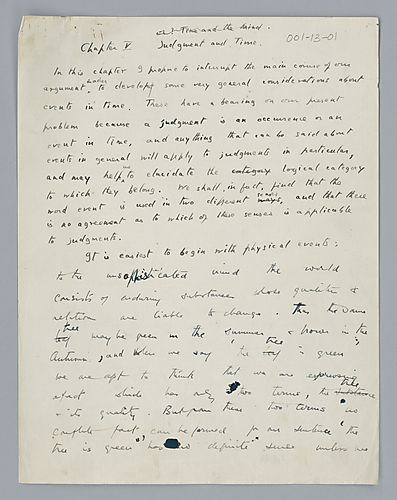 Time and the mind.
001-13-01
Chapter V Judgment and Time.
In this chapter I propose to interrupt the main course of our
argument, in order to develop some very general considerations about
events in time. These have a bearing on our present
problem because a judgment is an occurrence or an
event in time, and anything that can be said about
events in general will apply to judgments in particular,
and may help us to elucidate the category logical category
to which they belong. We shall, in fact, find that the
word event is used in two different ways, senses and that there
is no agreement as to which of these senses is applicable
to judgments.
It is easiest to begin with physical events:
to the unsophisticated mind the world
consists of enduring substances whose qualities &
relations are liable to change. Thus the same
tree may be green in the summer & brown in the
Autumn, and when we say the tree is green
we are apt to think that we are expressing
a fact which has only two terms, the tree substance
& its quality. But from these two terms no
complete fact can be formed for our sentence "the
tree is green" has no definite sense unless we